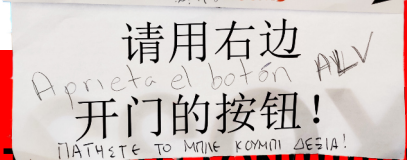 请用右边
Aprieta el botón ALV
开门的按钮！
ΠΑΤΗΣΤΕ ΤΟ ΜΠΛΕ ΚΟΥΜΠΙ ΔΕΞΙΑ!